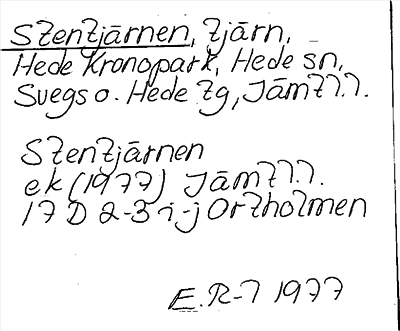 Stentjärnen, tjärn,
Hede Kronopark, Hede sn,
Svegs o. Hede tg, Jämtl.
Stentjärnen
ek (1977) Jämtl.
17 D 2-3 i-j Ortholmen
E.R-l 1977